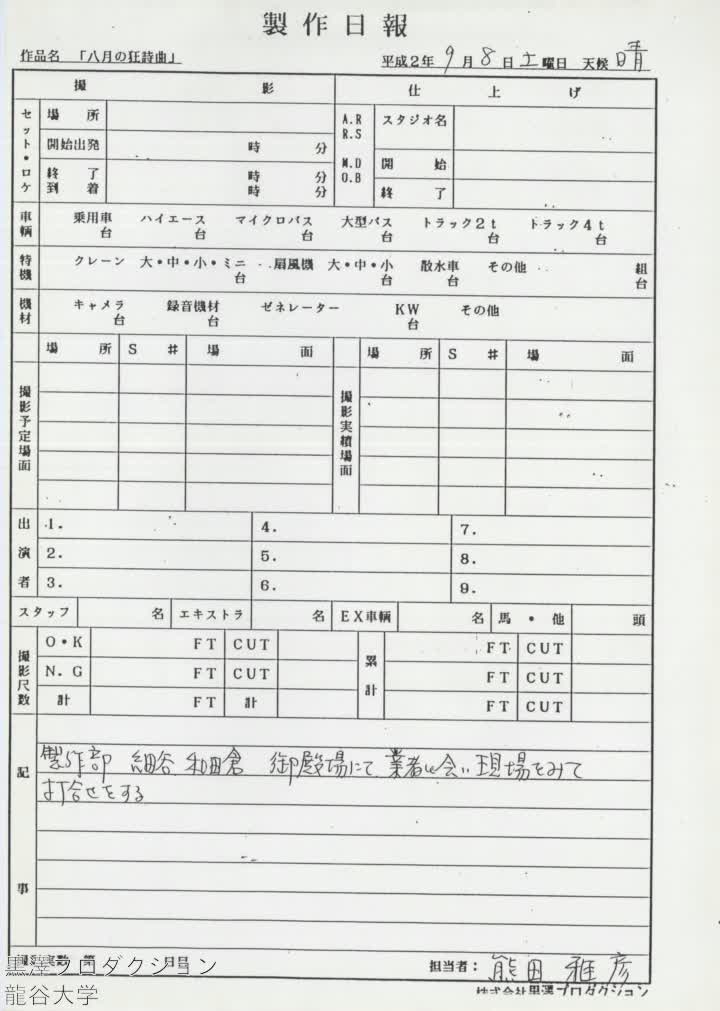 製作日報
作品名 「八月の狂詩曲」 平成2年 9月 8日 土曜日 天候 晴
撮影 仕上げ
セット・ロケ 場所 A.R R.S スタジオ名
開始出発 時 分 M.D O.B 開始
終了 時 分 終了
到着 時 分
車輌 乗用車 台 ハイエース 台 マイクロバス 台 大型バス 台 トラック2t 台 トラック4t 台
特機 クレーン 大・中・小・ミニ 台 扇風機 大・中・小 台 散水車 台 その他 組 台
機材 キャメラ 台 録音機材 台 ゼネレーター KW 台 その他
撮影予定場面 場所 S# 場面 撮影実績場面 場所 S# 場面
出演者 1. 4. 7.
2. 5. 8.
3. 6. 9.
スタッフ 名 エキストラ 名 EX車輌 名 馬・他 頭
撮影尺数 O・K FT CUT 累計 FT CUT
N.G FT CUT FT CUT
計 FT 計 FT CUT
記事
製作部 細谷 和田倉 御殿場にて 業者と会い 現場をみて
打合せをする
撮影実数 第 日目 担当者: 熊田雅彦
株式会社黒澤プロダクション
黒澤プロダクション
龍谷大学